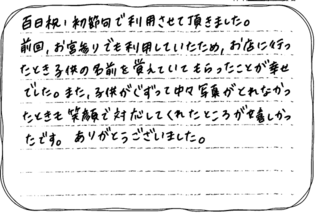 百日祝い初節句で利用させて頂きました。
前回、お宮参りでも利用していたため、お店に行っ
たとき子供の名前を覚えていてもらったことが幸せ
でした。また、子供がぐずって中々写真がとれなかっ
たときも笑顔で対応してくれたところが嬉しかっ
たです。ありがとうございました。